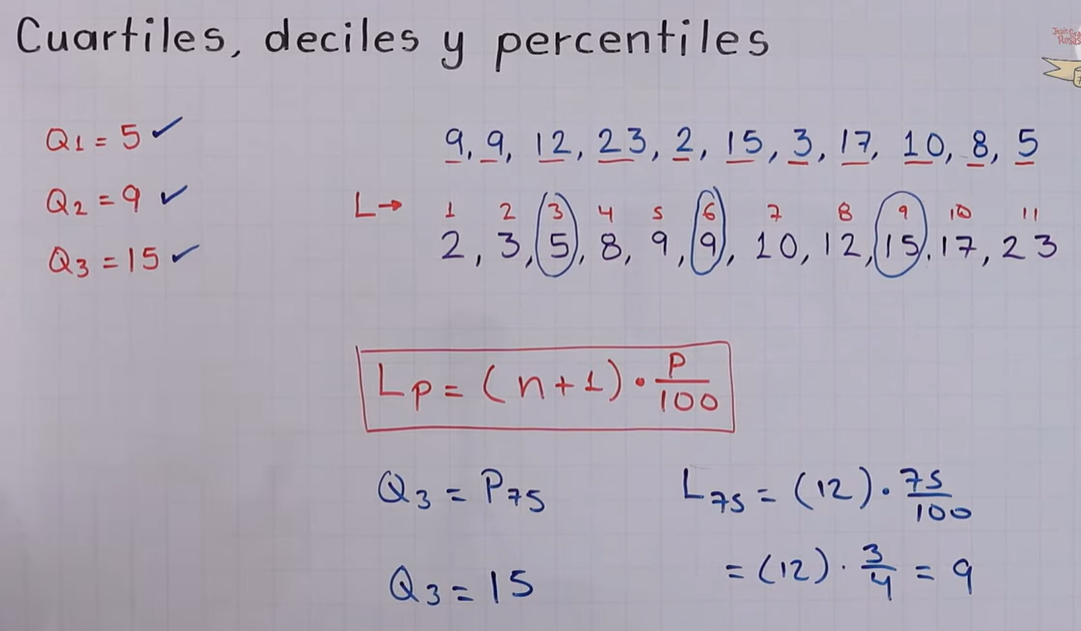 Cuartiles, deciles y percentiles
Q1 = 5 ✓
Q2 = 9 ✓
Q3 = 15 ✓
9, 9, 12, 23, 2, 15, 3, 17, 10, 8, 5
L → 1 2 3 4 5 6 7 8 9 10 11
2, 3, 5, 8, 9, 9, 10, 12, 15, 17, 23
Lp = (n+1) · P/100
Q3 = P75
L75 = (12) · 75/100
Q3 = 15
= (12) · 3/4 = 9